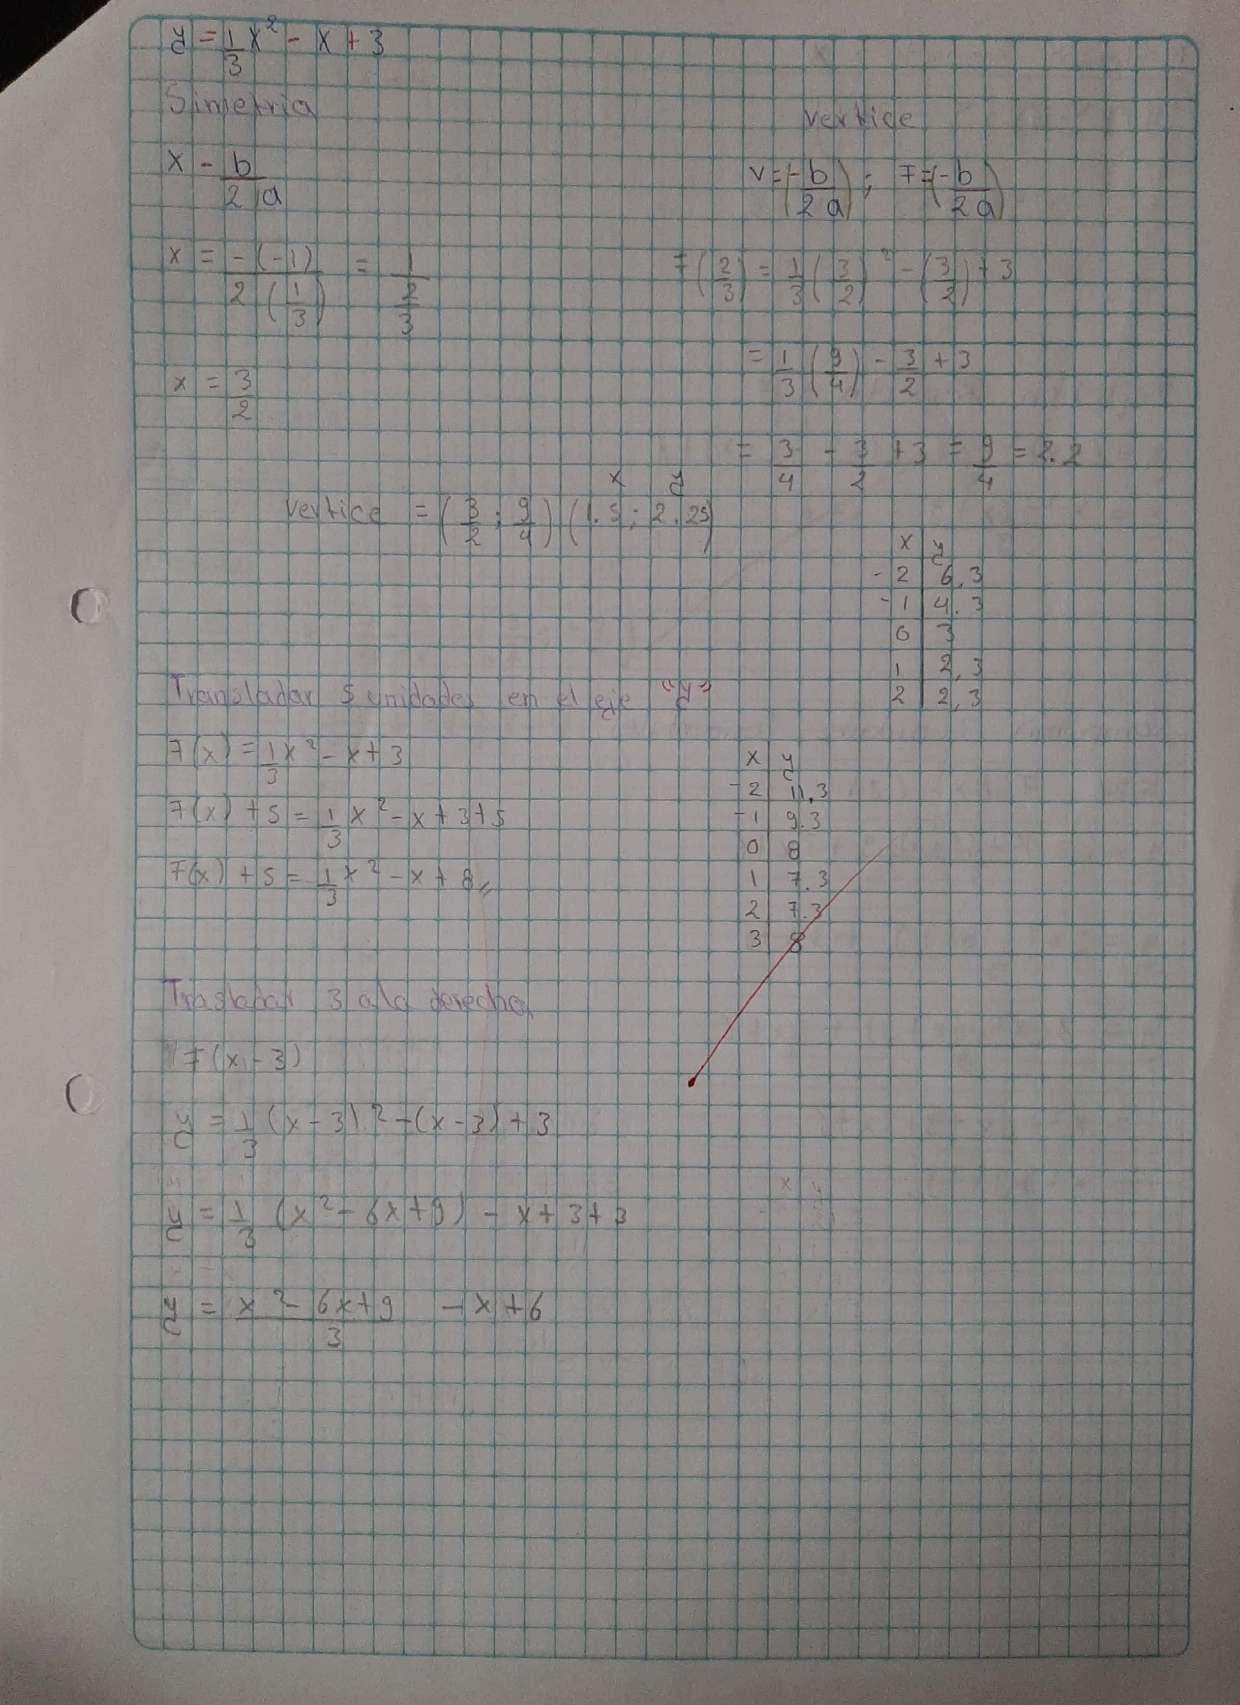 y = 1/3 x² - x + 3
Simetria
x - b/2a
x = -(-1)/2(1/3) = 1/(2/3)
x = 3/2
vertice
v = (-b/2a); F = (-b/2a)
F(2/3) = 1/3 (3/2)² - (3/2) + 3
= 1/3 (9/4) - 3/2 + 3
= 3/4 - 3/2 + 3 = 9/4 = 2.2
x y
vertice = (3/2; 9/4) (1.5; 2.25)
x | y
-2 | 6.3
-1 | 4.3
0 | 3
1 | 2,3
2 | 2,3
Transladar 5 unidades en el eje "y"
F(x) = 1/3 x² - x + 3
F(x) + 5 = 1/3 x² - x + 3 + 5
F(x) + 5 = 1/3 x² - x + 8
x | y
-2 | 11.3
-1 | 9.3
0 | 8
1 | 7.3
2 | 7.3
3 | 8
Trasladar 3 a la derecha
F(x - 3)
y = 1/3 (x - 3)² - (x - 3) + 3
y = 1/3 (x² - 6x + 9) - x + 3 + 3
y = x² - 6x + 9/3 - x + 6